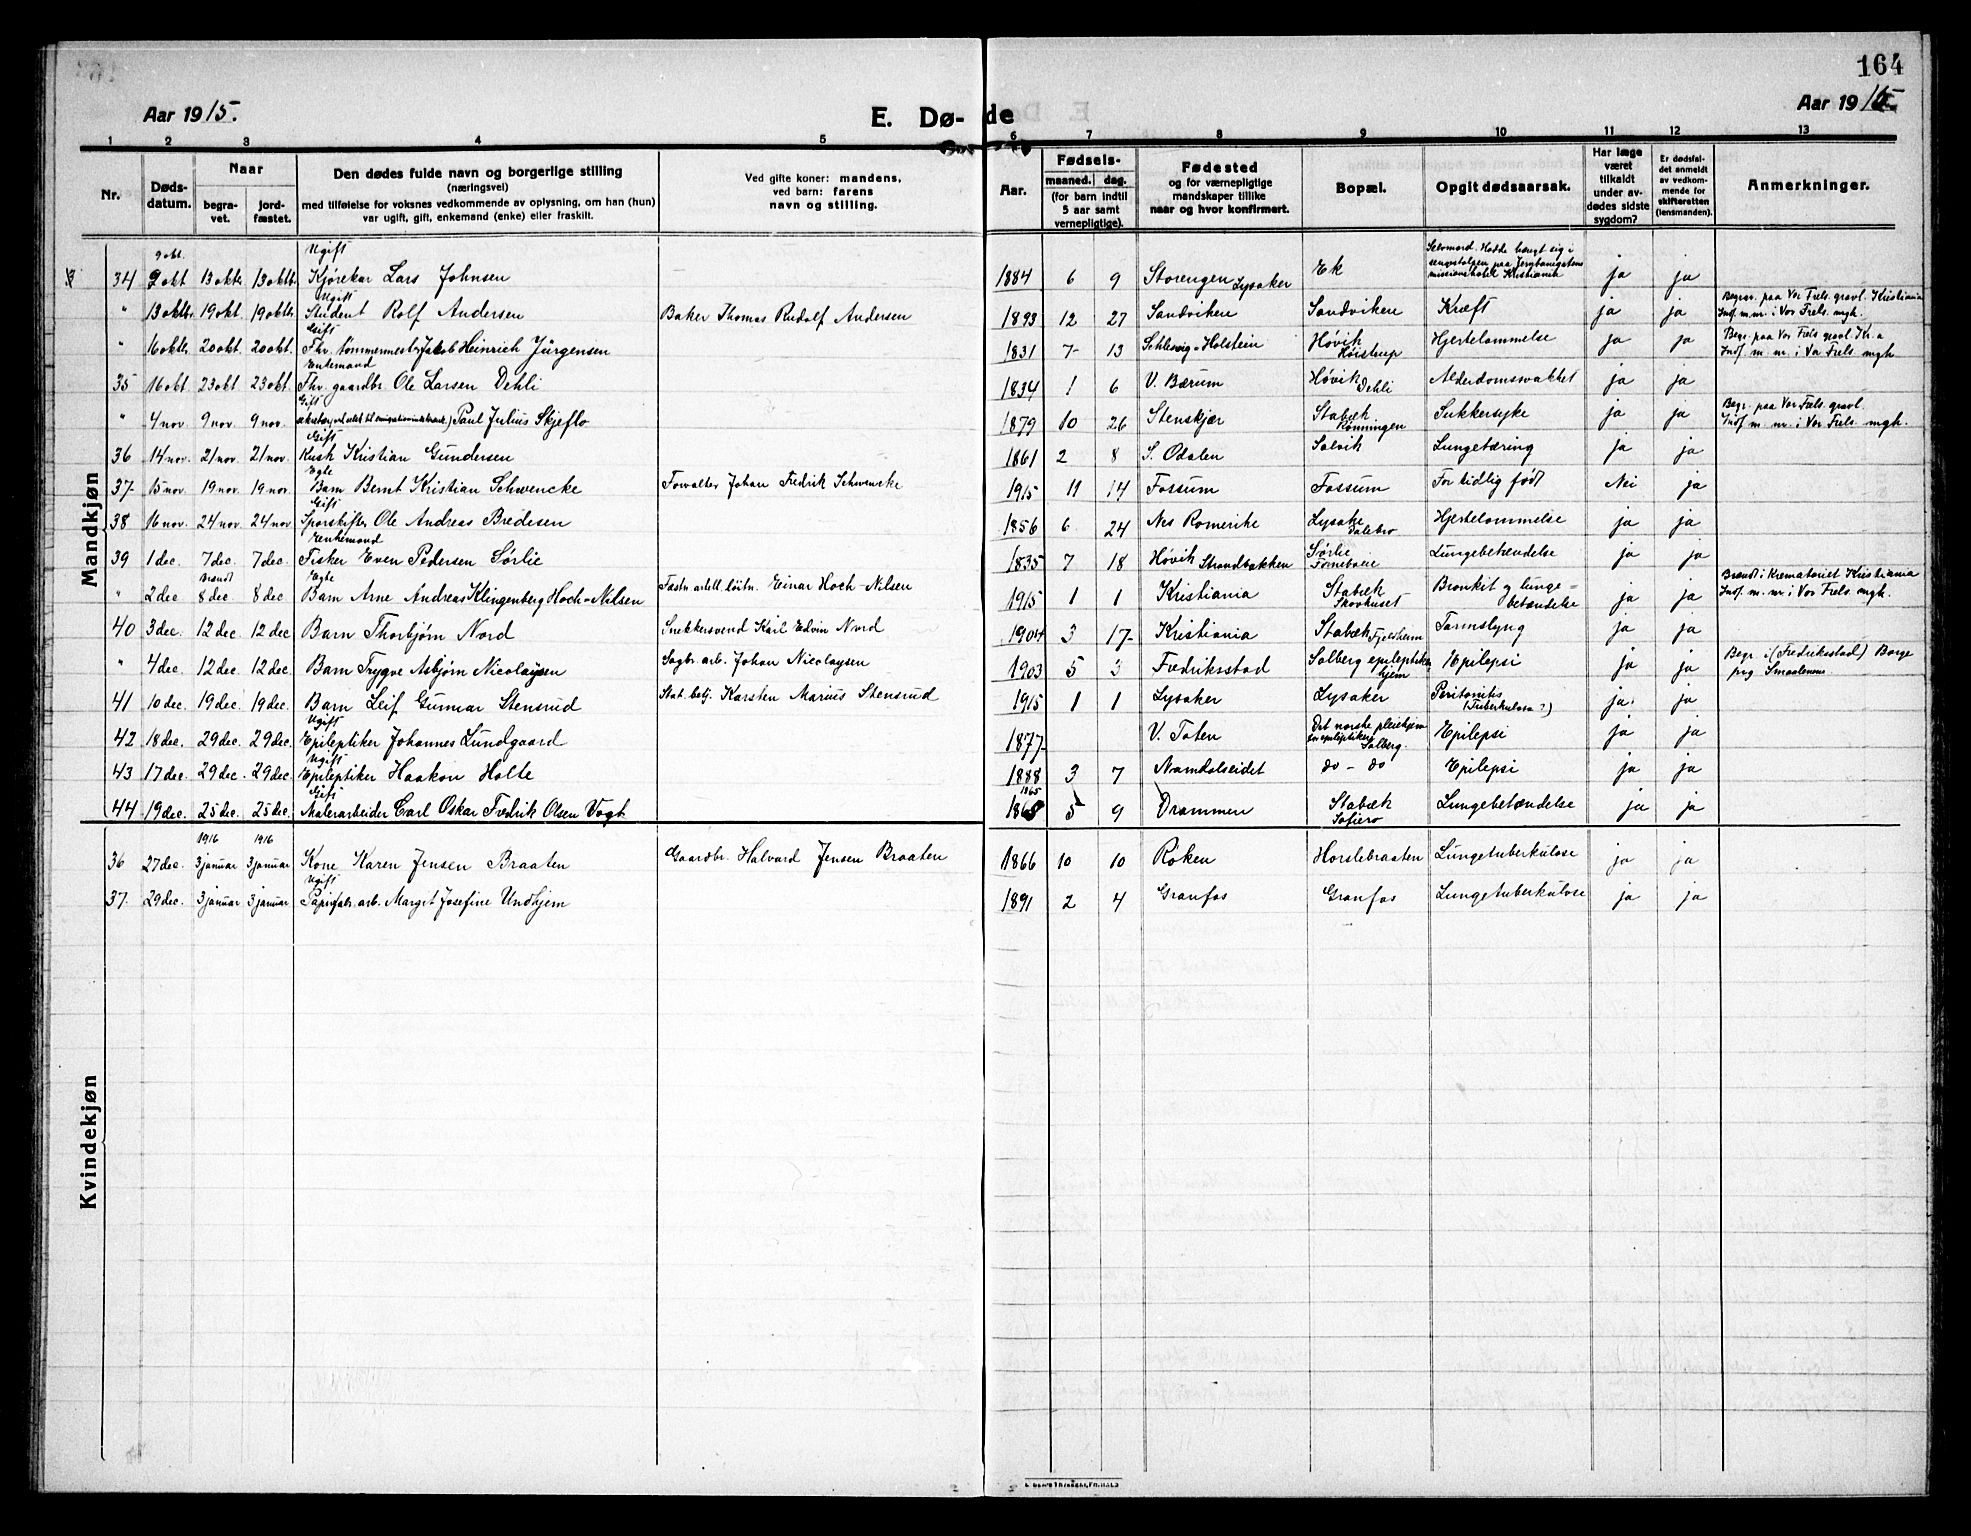 164
Aar 1915.
E. Døde
Aar 1915
1 2 3 4 5 6 7 8 9 10 11 12 13
Nr.
Døds-
datum.
Naar
begra-
vet.
jord-
fæstet.
Den dødes fulde navn og borgerlige stilling
(næringsvei)
med tilføielse for voksnes vedkommende av oplysning, om han (hun)
var ugift, gift, enkemand (enke) eller fraskilt.
Ved gifte koner: mandens,
ved barn: farens
navn og stilling.
Aar.
Fødsels-
maaned. dag.
(for barn indtil
5 aar samt
vernepligtige).
Fødested
og for værnepligtige
mandskaper tillike
naar og hvor konfirmert.
Bopæl.
Opgit dødsaarsak.
Har læge
været
tilkaldt
under av-
dødes sidste
sygdom?
Er dødsfal-
det anmeldt
av vedkom-
mende for
skifteretten
(lensmanden).
Anmerkninger.
Mandkjøn
9 okt. Ugift
34 9 okt 13 oktb 13 oktb. Kjørekar Lars Johnsen 1884 6 9 Storengen Lysaker Ek Selvmord. Hadde hængt sig i sengestolpen paa Jernbanegatens missionshotel Kristiania ja ja
Ugift
" 13 oktb. 19 okt. 19 oktb. Student Rolf Andersen Baker Thomas Rudolf Andersen 1893 12 27 Sandviken Sandviken Kræft ja ja Begr. paa Vor Frels. gravl. Kristiania Indf. m. nr. i Vor Frels. mgh.
Gift
" 16 oktb. 20 okt. 20 okt. Fhv. tømmermester Jakob Heinrich Jürgensen 1831 7 13 Schlesvig-Holstein Høvik Høistrup Hjertelammelse ja ja Begr. paa Vor Frels gravl. Kr.a Indf. m. nr. i Vor Frels. mgh
Enkemand
35 16 okt 23 okt 23 okt. Fhv. gaardbr. Ole Larsen Dehli 1834 1 6 V. Bærum Høvik Dehli Alderdomssvakhet ja ja
Gift
" 4 nov. 9 nov. 9 nov. Paul Julius Skjeflo 1879 10 26 Stenskjær Stabæk Rønningen Sukkersyke ja ja Begr. paa Vor Frels. gravl. Indf. m. nr. i Vor Frels. mgh.
Gift
36 14 nov. 21 nov. 21 nov. Kusk Kristian Gundersen 1861 2 8 S. Odalen Solvik Lungetæring ja ja
Egte
37 15 nov. 19 nov. 19 nov. Barn Bernt Kristian Schwencke Forvalter Johan Fredrik Schwencke 1915 11 14 Fossum Fossum For tidlig født Nei ja
Gift
38 16 nov. 24 nov. 24 nov. Sporskifter Ole Andreas Bredesen 1856 6 24 Nes Romerike Lysaker Dalebro Hjertelammelse ja ja
Enkemand
39 1 dec. 7 dec. 7 dec. Fisker Even Pedersen Sørlie 1835 7 18 Høvik Strandbakken Sørlie Fornebveie Lungebetændelse ja ja
Brændt Egte
" 2 dec 8 dec. 8 dec Barn Arne Andreas Klingenberg Hoch-Nilsen Fastn. artell. løitn. Einar Hoch-Nilsen 1915 1 1 Kristiania Stabæk Skovhuset Bronkit og lungebetændelse ja ja Brændt i krematoriet Kristiania Indf. m. nr. i Vor Frels. mgh.
40 3 dec. 12 dec. 12 dec Barn Thorbjørn Nord Snekkersvend Karl Edvin Nord 1904 3 17 Kristiania Stabæk Fjeldheim Tarmslyng ja ja
" 4 dec. 12 dec. 12 dec. Barn Trygve Asbjørn Nicolaysen Sagbr. arb. Johan Nicolaysen 1903 5 3 Fredriksstad Solberg epileptikerhjem Epilepsi ja ja Begr. i (Fredriksstad) Borge prg Smaalenene
41 10 dec. 19 dec. 19 dec. Barn Leif Gunnar Stensrud Stat. betj. Karsten Marius Stensrud 1915 1 1 Lysaker Lysaker Peritonitis (Tuberkuløse?) ja ja
Ugift
42 18 dec. 29 dec. 29 dec. Epileptiker Johannes Lundgaard 1877 V. Toten Det norske pleiehjem for epileptiker Solberg Epilepsi ja ja
Ugift
43 17 dec. 29 dec. 29 dec. Epileptiker Haakon Holte 1888 3 7 Namdalseidet do - do Epilepsi ja ja
Gift 1865
44 19 dec. 25 dec. 25 dec. Malerarbeider Carl Oskar Fredrik Olsen Vogt 1865 5 9 Drammen Stabæk Sofiero Lungebetændelse ja ja
Kvindekjøn
1916 1916
36 27 dec. 3 januar 3 januar Kone Karen Jensen Braaten Gaardbr. Halvard Jensen Braaten 1866 10 10 Røken Horslebraaten Lungetuberkuløse ja ja
Ugift
37. 29 dec. 3 januar 3 januar Papirfabr. arb. Margit Josefine Undhjem 1891 2 4 Granfos Granfos Lungetuberkuløse ja ja